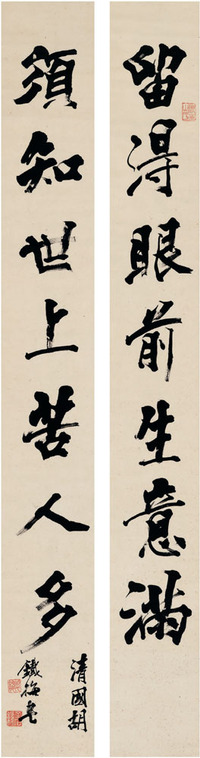 留得眼前生意滿
須知世上苦人多
清國胡
鐵梅